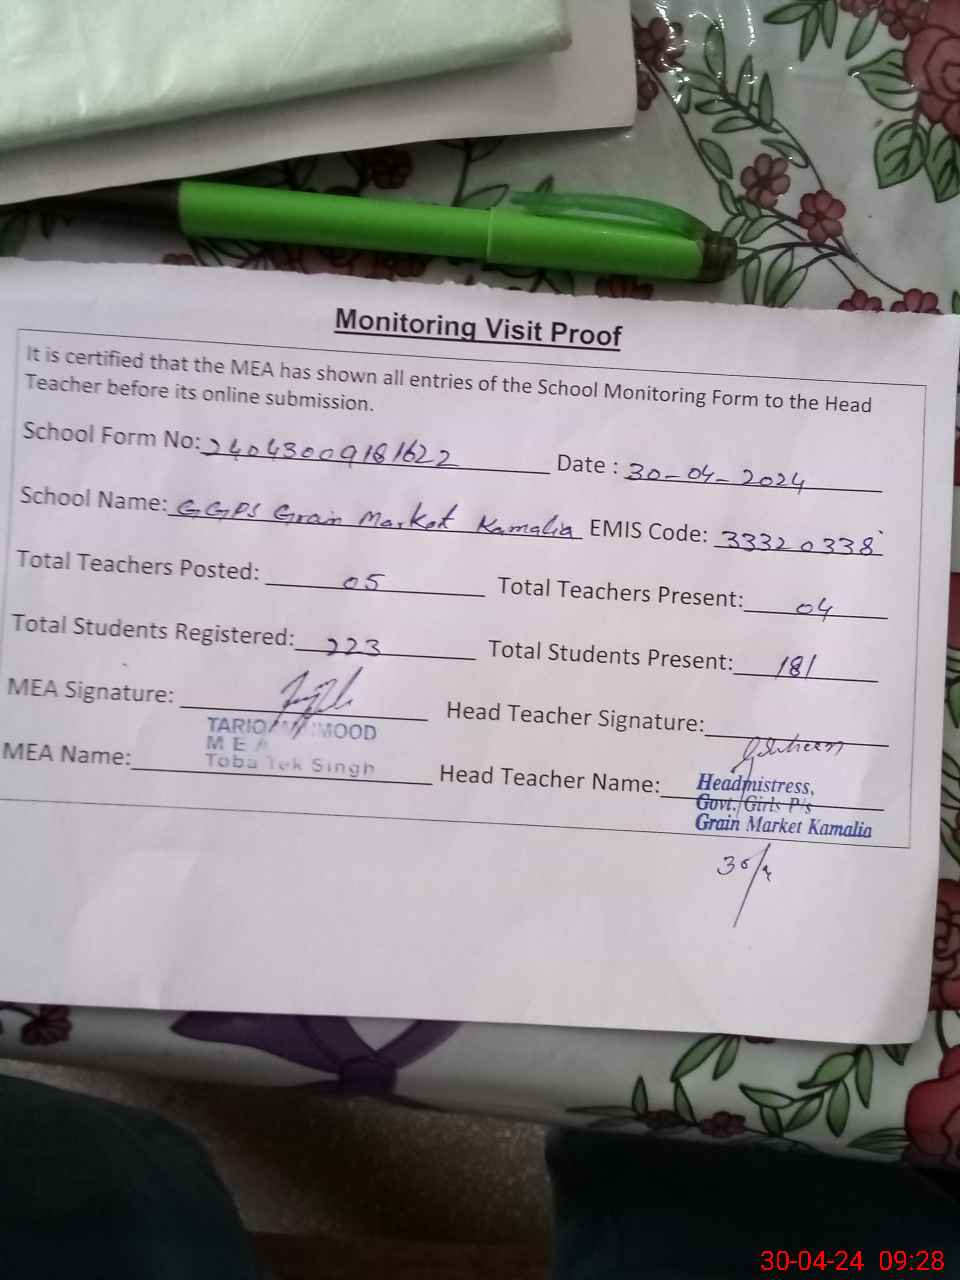 Monitoring Visit Proof
It is certified that the MEA has shown all entries of the School Monitoring Form to the Head
Teacher before its online submission.
School Form No: 24043009181622 Date : 30-04-2024
School Name: GGPS Grain Market Kamalia EMIS Code: 33320338
Total Teachers Posted: 05 Total Teachers Present: 04
Total Students Registered: 223 Total Students Present: 181
MEA Signature: Head Teacher Signature:
MEA Name: Head Teacher Name:
MEA
Toba Tek Singh
Headmistress,
Govt. Girls P/s
Grain Market Kamalia
30/4
30-04-24 09:28